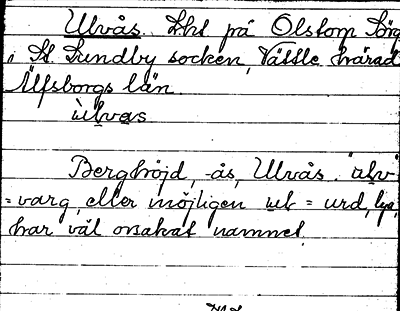 Ulvås. Lht på Olstorp Sörg
i St. Lundby socken, Vättle härad
Älfsborgs län.
ùlvas
Berghöjd, -ås, Ulvås. "ulv"
= varg, eller möjligen = urd, lya,
har väl orsakat namnet.